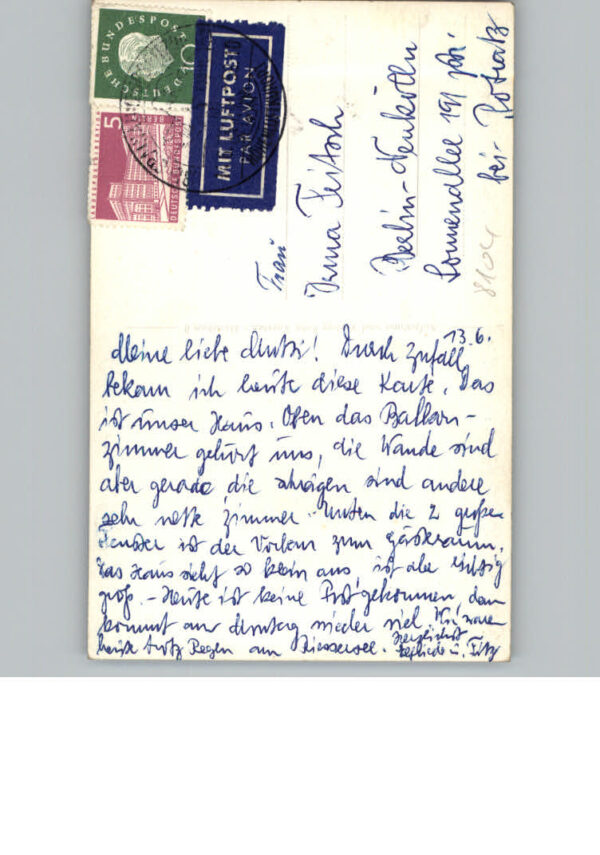 DEUTSCHE BUNDESPOST
DEUTSCHE BUNDESPOST
BERLIN
5
MIT LUFTPOST
PAR AVION
Frau
Irma
Berlin-Neukölln
Sonnenallee 191
bei
8104
13.6.
Meine liebe Mutti! Durch Zufall
bekam ich heute diese Karte. Das
ist unser Haus. Oben das Balkon-
zimmer gehört uns, die Wände sind
aber gerade, die schrägen sind andere
sehr nette Zimmer. Unten die 2 großen
Fenster ist der Vorbau zum
Das Haus sieht so klein aus, ist aber richtig
groß. - Heute ist keine Post gekommen, dann
kommt am Montag wieder viel. Wir waren
heute trotz Regen am Riessersee. Herzlichst
u. Fritz